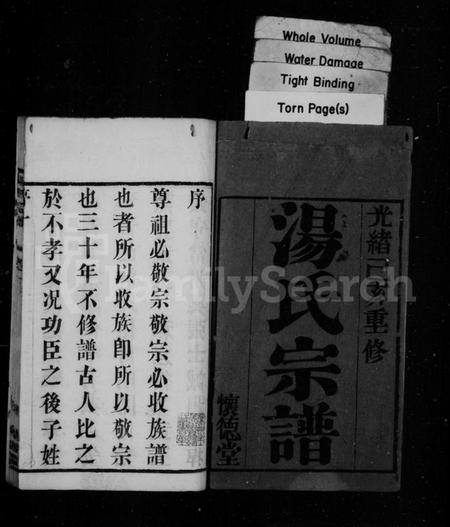 Whole Volume
Water Damage
Tight Binding
Torn Page(s)
光緒己亥重修
湯氏宗譜
懷德堂
序
尊祖必敬宗敬宗必收族譜
也者所以收族卽所以敬宗
也三十年不修譜古人比之
於不孝又况功臣之後子姓
FamilySearch